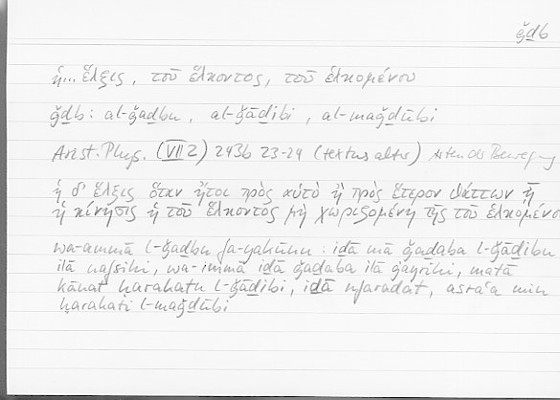 ǧḏb
ἡ... ἕλξις, τοῦ ἕλκοντος, τοῦ ἑλκομένου
ǧḏb: al-ǧaḏbu, al-ǧāḏibi, al-maǧḏūbi
Arist. Phys. (VII 2) 243b 23-24 (textus alter) Arten der Bewegung
ἡ δ' ἕλξις ὅταν ἤτοι πρὸς αὑτὸ ἢ πρὸς ἕτερον θάττων ᾖ
ἡ κίνησις ἡ τοῦ ἕλκοντος μὴ χωριζομένη τῆς τοῦ ἑλκομένου
wa-ammā l-ǧaḏbu fa-yakūnu: iḏā mā ǧaḏaba l-ǧāḏibu
ilā nafsihi, wa-immā iḏā ǧaḏaba ilā ġayrihi, matā
kānat ḥarakatu l-ǧāḏibi, iḏā nfaradat, asraʿa min
ḥarakati l-maǧḏūbi